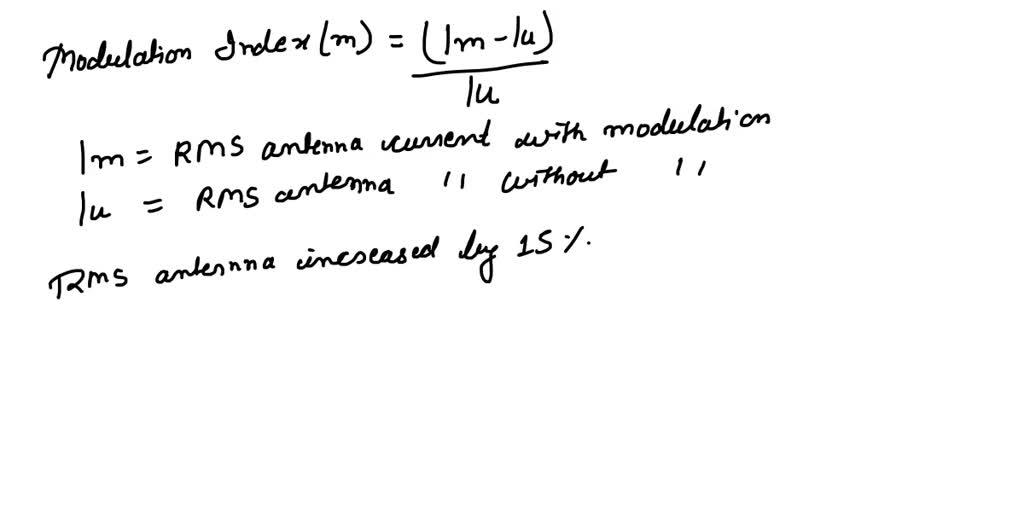 Modulation Index (m) = (Im - Iu)
Iu
Im = RMS antenna current with modulation
Iu = RMS antenna " without "
RMS antennna increased by 15 %.